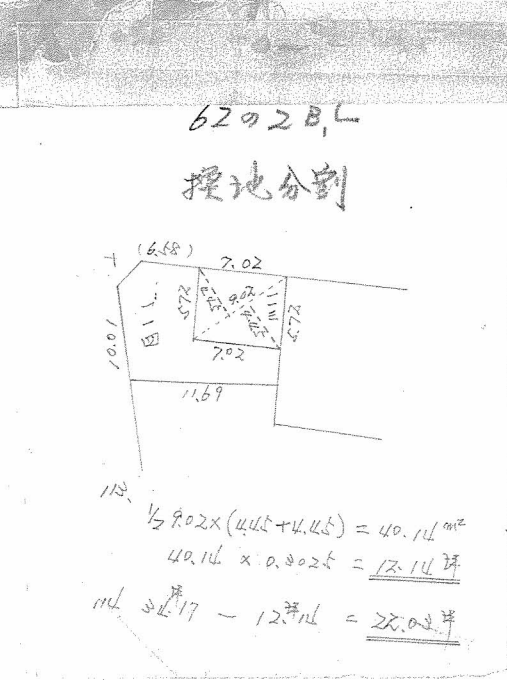 62の2 B,L
換地分割
(6.58)
7.02
5.73
4.45
9.02
4.45
5.73
10.01
7.02
11.69
1/2 9.02×(4.45+4.45) = 40.14 m²
40.14 × 0.3025 = 12.14 坪
34坪17 - 12坪14 = 22.03坪